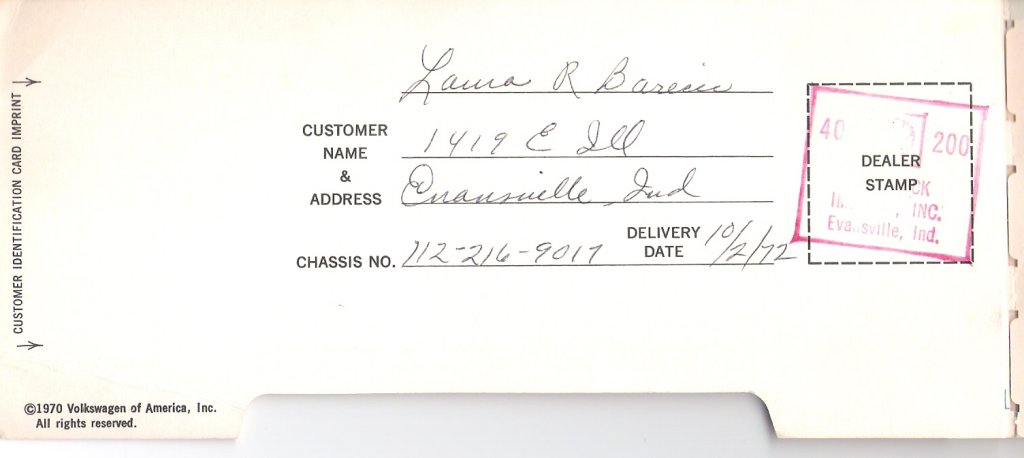 CUSTOMER IDENTIFICATION CARD IMPRINT
Laura R
CUSTOMER NAME & ADDRESS
1419 E Ill
Evansville, Ind
CHASSIS NO. 112-216-9017
DELIVERY DATE 10/2/72
DEALER STAMP
40
200
INC.
Evansville, Ind.
©1970 Volkswagen of America, Inc.
All rights reserved.